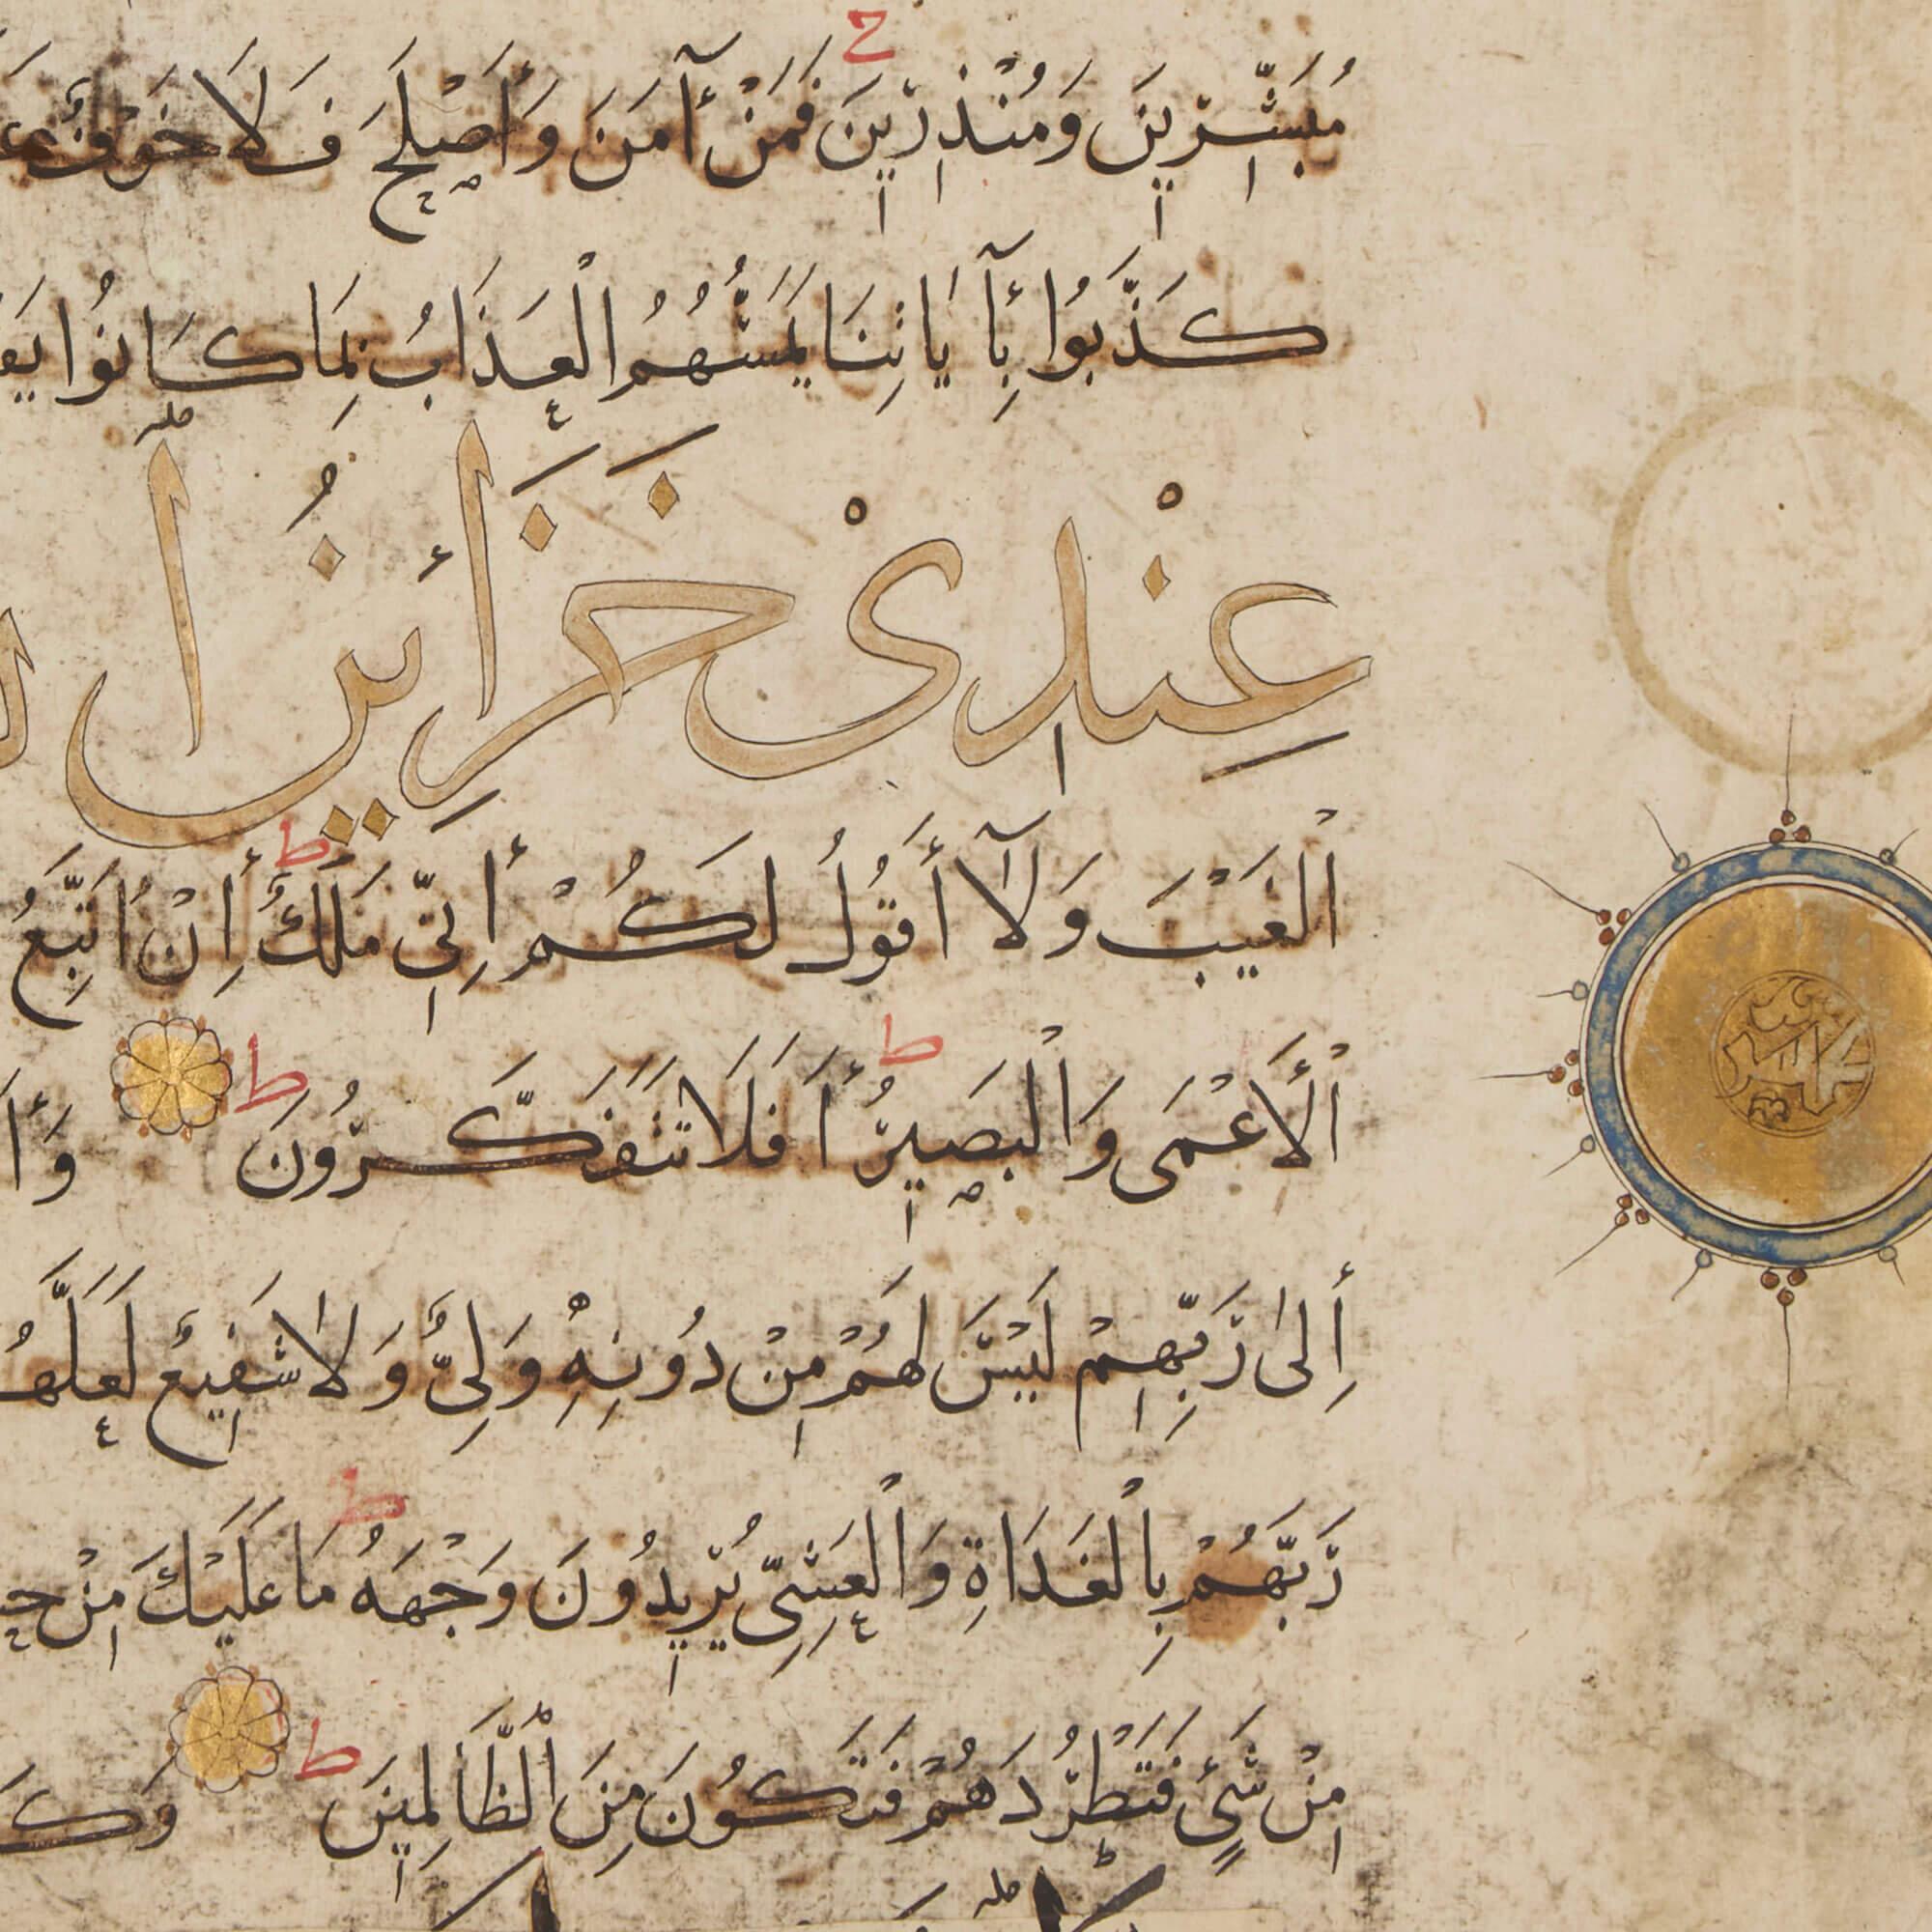 مُبَشِّرِينَ وَمُنْذِرِينَ فَمَنْ آمَنَ وَأَصْلَحَ فَلَا خَوْفٌ
كَذَّبُوا بِآيَاتِنَا يَمَسُّهُمُ الْعَذَابُ بِمَا كَانُوا
عِنْدِىْ خَزَائِنُ ا
الْغَيْبَ وَلَآ أَقُولُ لَكُمْ إِنِّى مَلَكٌ إِنْ أَتَّبِعُ
الْأَعْمَى وَالْبَصِيرُ أَفَلَا تَتَفَكَّرُونَ وَأَ
إِلَىٰ رَبِّهِمْ لَيْسَ لَهُمْ مِنْ دُونِهِ وَلِىٌّ وَلَا شَفِيعٌ لَعَلَّهُ
رَبَّهُمْ بِالْغَدَاةِ وَالْعَشِىِّ يُرِيدُونَ وَجْهَهُ مَا عَلَيْكَ مِنْ
مِنْ شَىْءٍ فَتَطْرُدَهُمْ فَتَكُونَ مِنَ الظَّالِمِينَ وَكَ